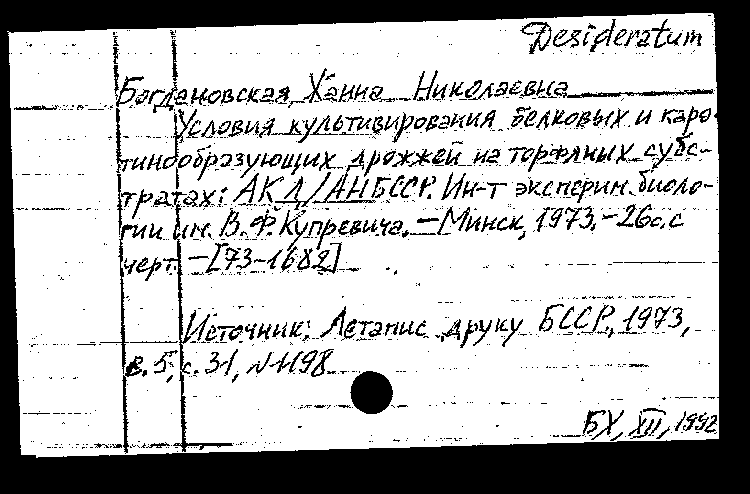 Desideratum
Богдановская, Ханна Николаевна
Условия культивирования белковых и каро-
тинообразующих дрожжей на торфяных субс-
тратах: АКД/АН БССР. Ин-т эксперим. биоло-
гии им. В.Ф. Купревича. – Минск, 1973. – 26с. с
черт. – [73-1682]
Источник: Летапис друку БССР, 1973,
в. 5, с. 31, N 1198
БХ, XII, 1992